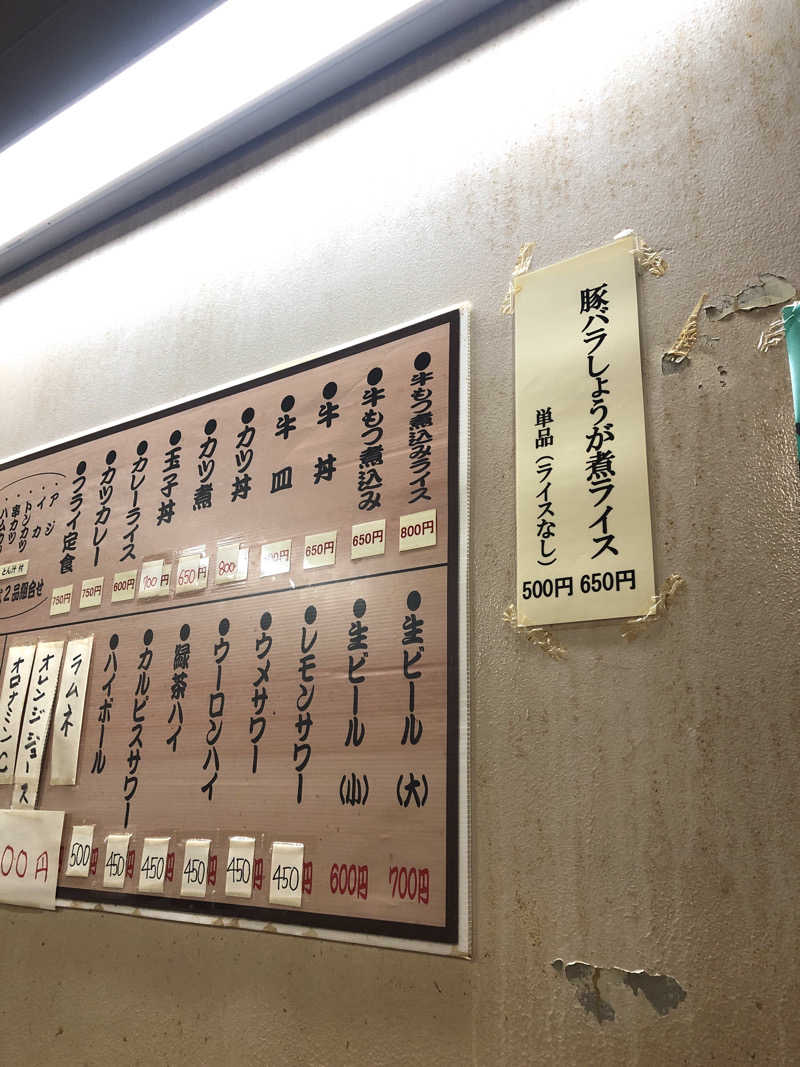 豚バラしょうが煮ライス
単品（ライスなし）
500円 650円
●牛もつ煮込みライス
800円
●牛もつ煮込み
650円
●牛丼
650円
●牛皿
●カツ丼
800
●カツ煮
650円
●玉子丼
700円
●カレーライス
600円
●カツカレー
750円
●フライ定食
750円
アジ
イカ
トンカツ
串カツ
ハムカツ
とん汁付
2品組合せ
●生ビール（大）
700円
●生ビール（小）
600円
●レモンサワー
450円
●ウメサワー
450円
●ウーロンハイ
450円
●緑茶ハイ
450円
●カルピスサワー
450円
●ハイボール
500円
ラムネ
オレンジジュース
オロナミンC
00円